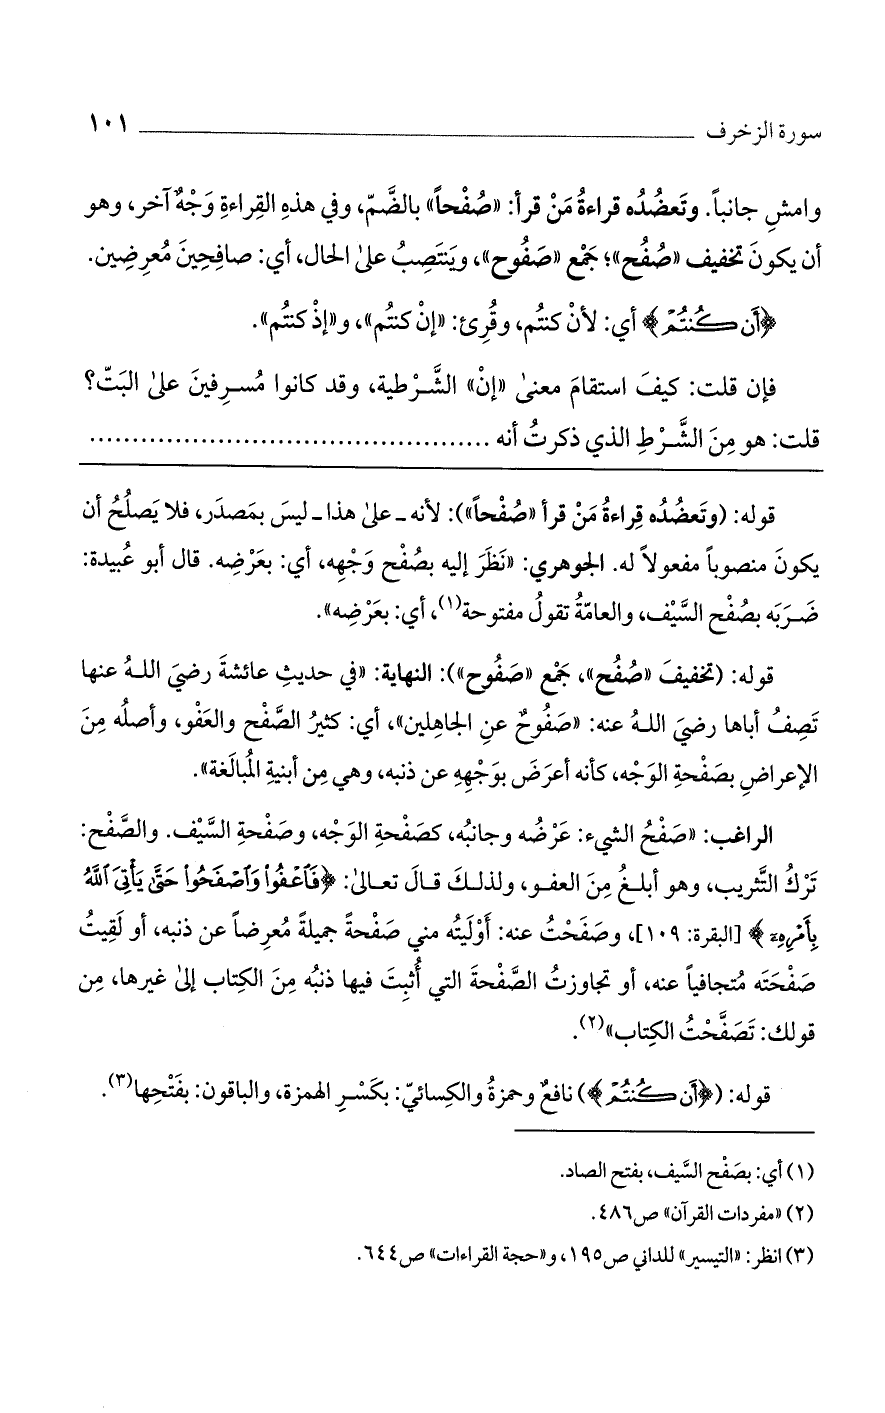 سورة الزخرف ١٠١
وامشِ جانباً. وتَعضُدُه قراءةُ مَنْ قرأ: «صُفْحاً» بالضَّمّ، وفي هذهِ القِراءةِ وَجْهٌ آخر، وهو
أن يكونَ تخفيف «صُفُح»؛ جَمْع «صَفُوح»، ويَنتَصِبُ على الحال، أي: صافِحِينَ مُعرِضِين.
﴿أَن كُنتُمْ﴾ أي: لأنْ كنتُم، وقُرِئ: «إنْ كنتُم»، و«إذْ كنتُم».
فإن قلت: كيفَ استقامَ معنى «إنْ» الشَّرْطية، وقد كانوا مُسرِفينَ على البَتّ؟
قلت: هو مِنَ الشَّرْطِ الذي ذكرتُ أنه ..............................................
قوله: (وتَعضُدُه قِراءةُ مَنْ قرأ «صُفْحاً»): لأنه ـ على هذا ـ ليسَ بمَصدَر، فلا يَصلُحُ أن
يكونَ منصوباً مفعولاً له. الجوهري: «نَظَرَ إليه بصُفْحِ وَجْهِه، أي: بعَرْضِه. قال أبو عُبيدة:
ضَرَبَه بصُفْحِ السَّيْف، والعامّةُ تقولُ مفتوحة(١)، أي: بعَرْضِه».
قوله: (تخفيفَ «صُفُح»، جَمْع «صَفُوح»): النهاية: «في حديثِ عائشةَ رضيَ اللهُ عنها
تَصِفُ أباها رضيَ اللهُ عنه: «صَفُوحٌ عنِ الجاهلين»، أي: كثيرُ الصَّفْح والعَفْو، وأصلُه مِنَ
الإعراضِ بصَفْحةِ الوَجْه، كأنه أعرَضَ بوَجْهِهِ عن ذنبه، وهي مِن أبنيةِ المُبالَغة».
الراغب: «صَفْحُ الشيء: عَرْضُه وجانبُه، كصَفْحةِ الوَجْه، وصَفْحةِ السَّيْف. والصَّفْح:
تَرْكُ التَّثريب، وهو أبلغُ مِنَ العفو، ولذلكَ قالَ تعالى: ﴿فَٱعْفُوا۟ وَٱصْفَحُوا۟ حَتَّىٰ يَأْتِىَ ٱللَّهُ
بِأَمْرِهِۦ﴾ [البقرة: ١٠٩]، وصَفَحْتُ عنه: أوْلَيتُه مني صَفْحةً جميلةً مُعرِضاً عن ذنبه، أو لَقِيتُ
صَفْحَتَه مُتجافياً عنه، أو تجاوزتُ الصَّفْحةَ التي أُثبِتَ فيها ذنبُه مِنَ الكِتاب إلى غيرها، مِن
قولك: تَصَفَّحْتُ الكِتاب»(٢).
قوله: (﴿أَن كُنتُمْ﴾) نافعٌ وحمزةُ والكِسائيّ: بكَسْرِ الهمزة، والباقون: بفَتْحِها(٣).
(١) أي: بصَفْح السَّيف، بفتح الصاد.
(٢) «مفردات القرآن» ص٤٨٦.
(٣) انظر: «التيسير» للداني ص١٩٥، و«حجة القراءات» ص٦٤٤.